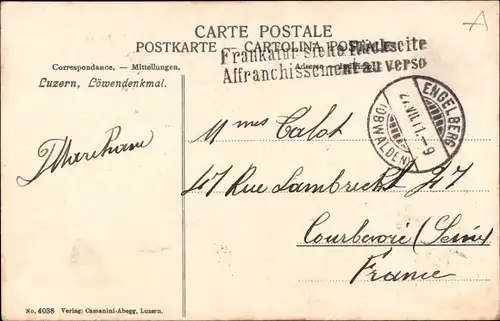 CARTE POSTALE
POSTKARTE - CARTOLINA POSTALE
Frankatur siehe Rückseite
Affranchissement au verso
Correspondance. — Mitteilungen.
Luzern, Löwendenkmal.
ENGELBERG
27.VII.11.-9
(OBWALDEN)
Mmes Calot
47 Rue Lambrecht 47
Courbevoie (Seine
France
No. 4038 Verlag: Camanini-Abegg, Luzern.